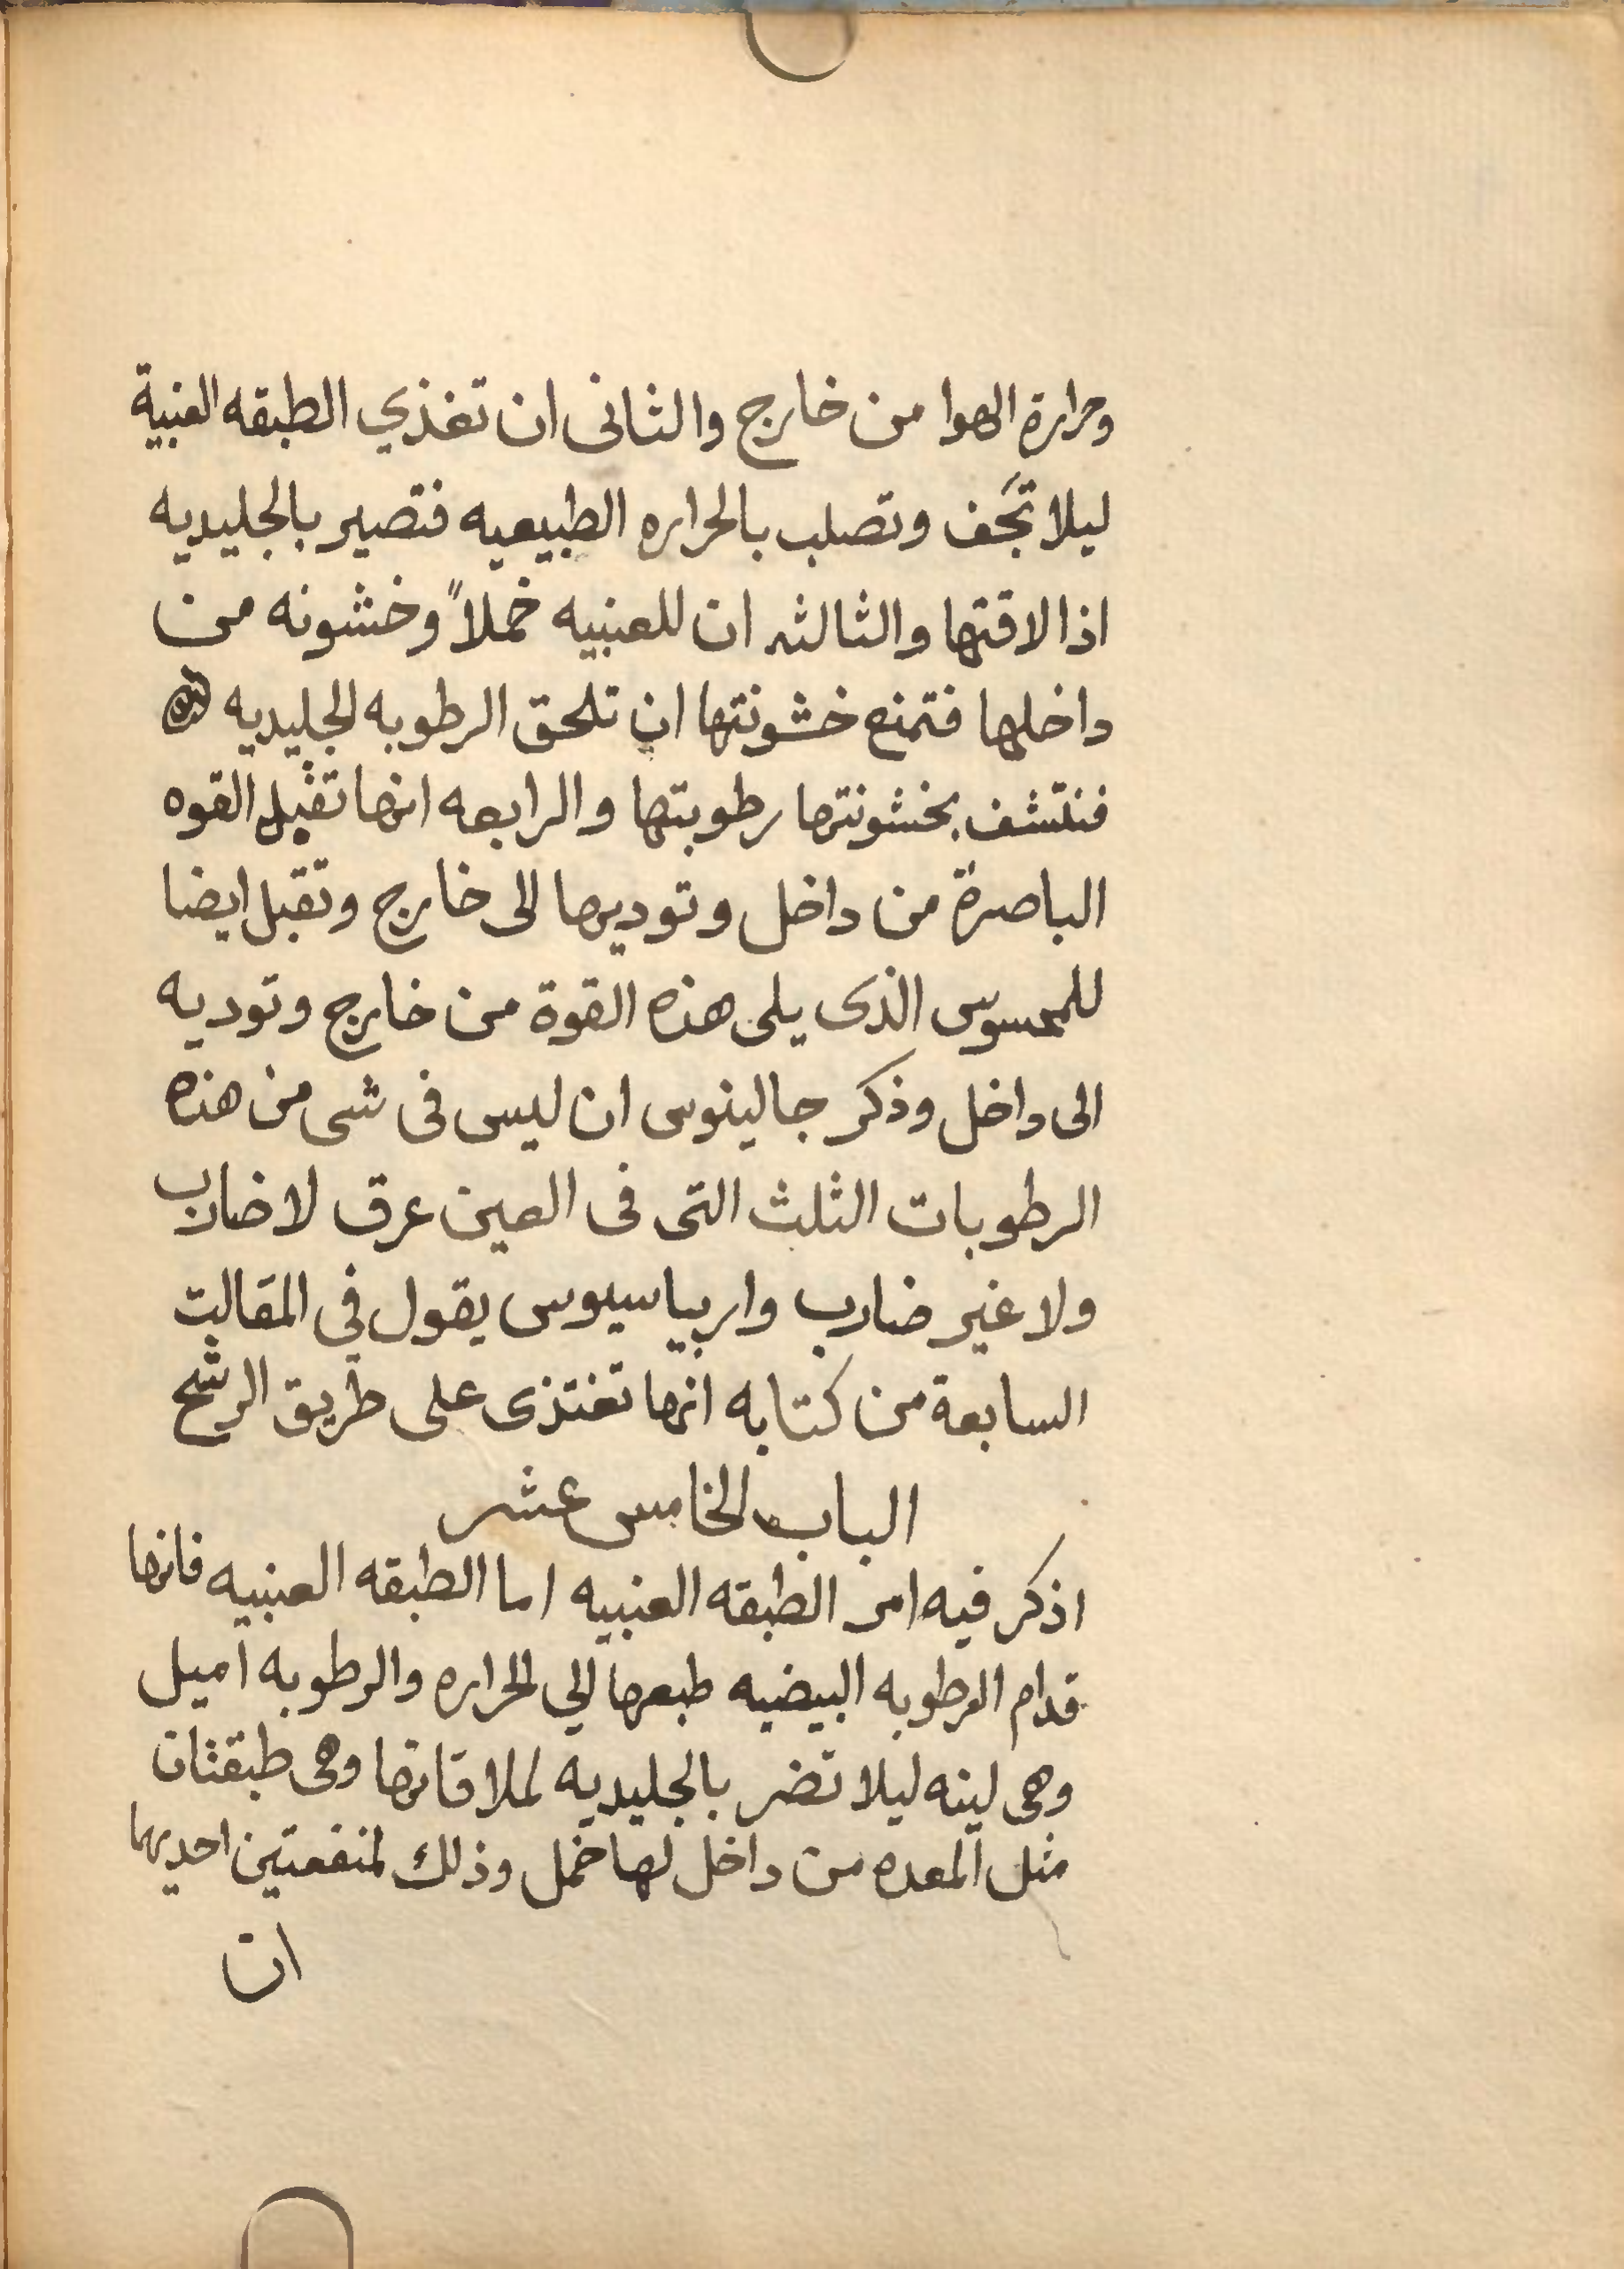 وحرارة الهوا من خارج والثانى ان تغذي الطبقه العنبية
ليلا تجَف وتصلب بالحراره الطبيعيه فتصير بالجليديه
اذا لاقتها والثالثه ان للعنبيه خملاً وخشونه من
داخلها فتمنع خشونتها ان تلحق الرطوبه الجليديه
فنتشف بخشونتها رطوبتها والرابعه انها تقبل القوه
الباصرة من داخل وتوديها الى خارج وتقبل ايضا
للمحسوس الذى يلى هذه القوة من خارج وتوديه
الى داخل وذكر جالينوس ان ليس فى شى من هذه
الرطوبات الثلث التى فى العين عرق لا ضارب
ولا غير ضارب واريباسيوس يقول في المقالة
السابعة من كتابه انها تغتذى على طريق الرشح
الباب الخامس عشر
اذكر فيه امر الطبقه العنبيه اما الطبقه العنبيه فانها
قدام الرطوبه البيضيه طبعها الي الحراره والرطوبه اميل
وهى لينه ليلا تضر بالجليديه لملاقاتها وهى طبقتان
مثل المعده من داخل لها خمل وذلك لمنفعتين احديهما
ان